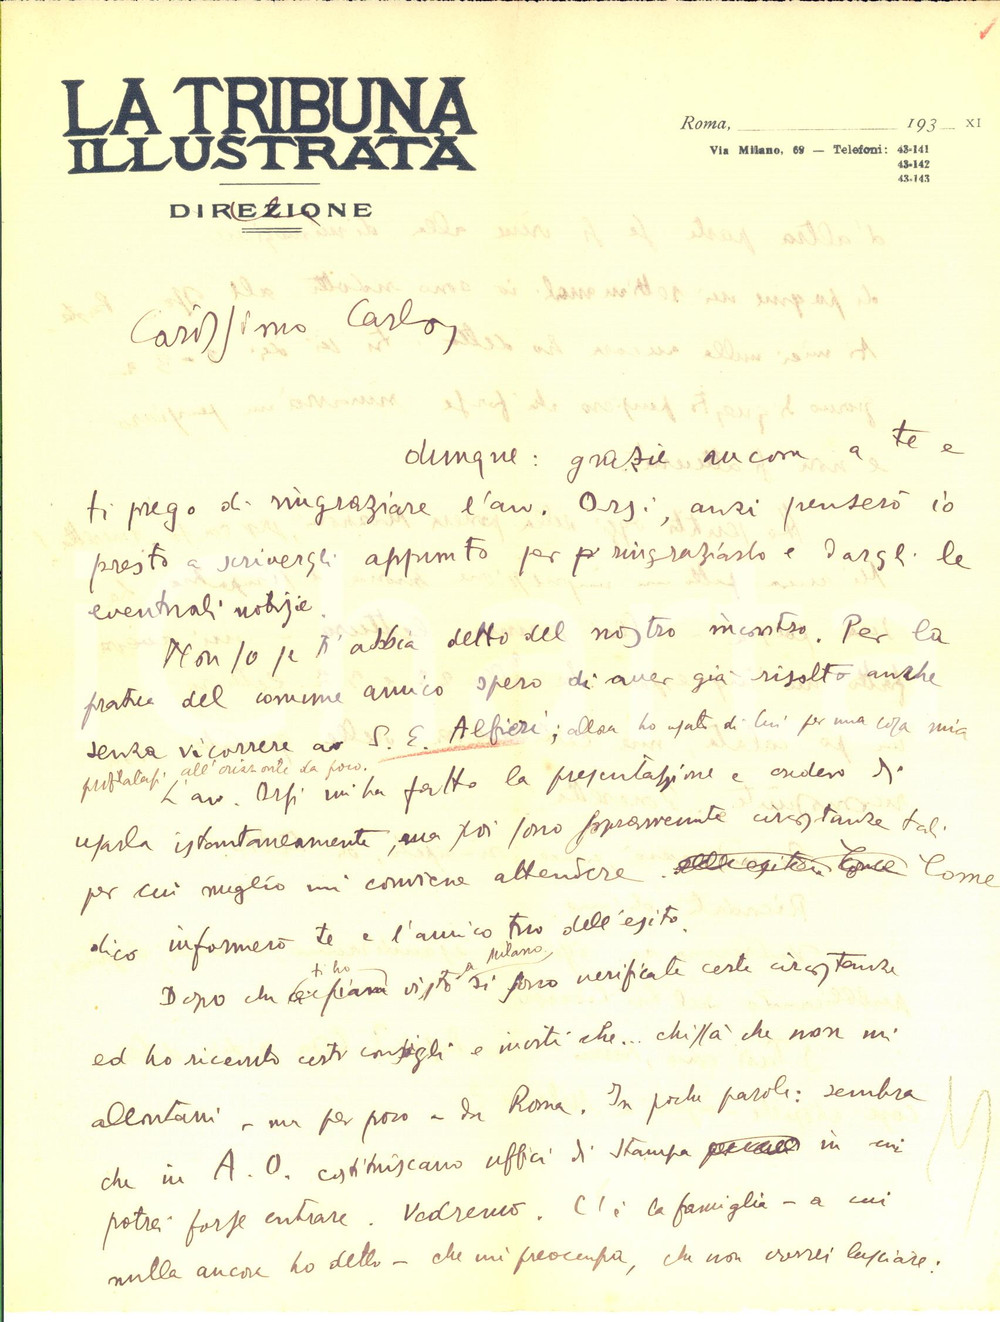 LA TRIBUNA
ILLUSTRATA
DIREZIONE
Roma, 193 XI
Via Milano, 69 — Telefoni: 43-141
43-142
43-143
Carissimo Carlo,
dunque: grazie ancora a te e
ti prego di ringraziare l'av. Orsi, anzi penserò io
presto a scrivergli appunto per ringraziarlo e dargli le
eventuali notizie.
Non so se t'abbia detto del nostro incontro. Per la
pratica del comune amico spero di aver già risolto anche
senza ricorrere a S. E. Alfieri; allora ho di lui per una cosa mia
all'orizzonte da poco.
L'av. Orsi mi ha fatto la presentazione e credevo di
usarla istantaneamente, ma poi sono sopravvenute circostanze tali
per cui meglio mi conviene attendere. Come
dico informerò te e l'amico tuo dell'esito.
Dopo che ti ho visto a Milano si sono verificate certe circostanze
ed ho ricevuto certi consigli e inviti che... chissà che non mi
allontani - ma per poco - da Roma. In poche parole: sembra
che in A. O. costituiscano uffici di Stampa in cui
potrei forse entrare. Vedremo. C'è la famiglia - a cui
nulla ancora ho detto - che mi preoccupa, che non vorrei lasciare: